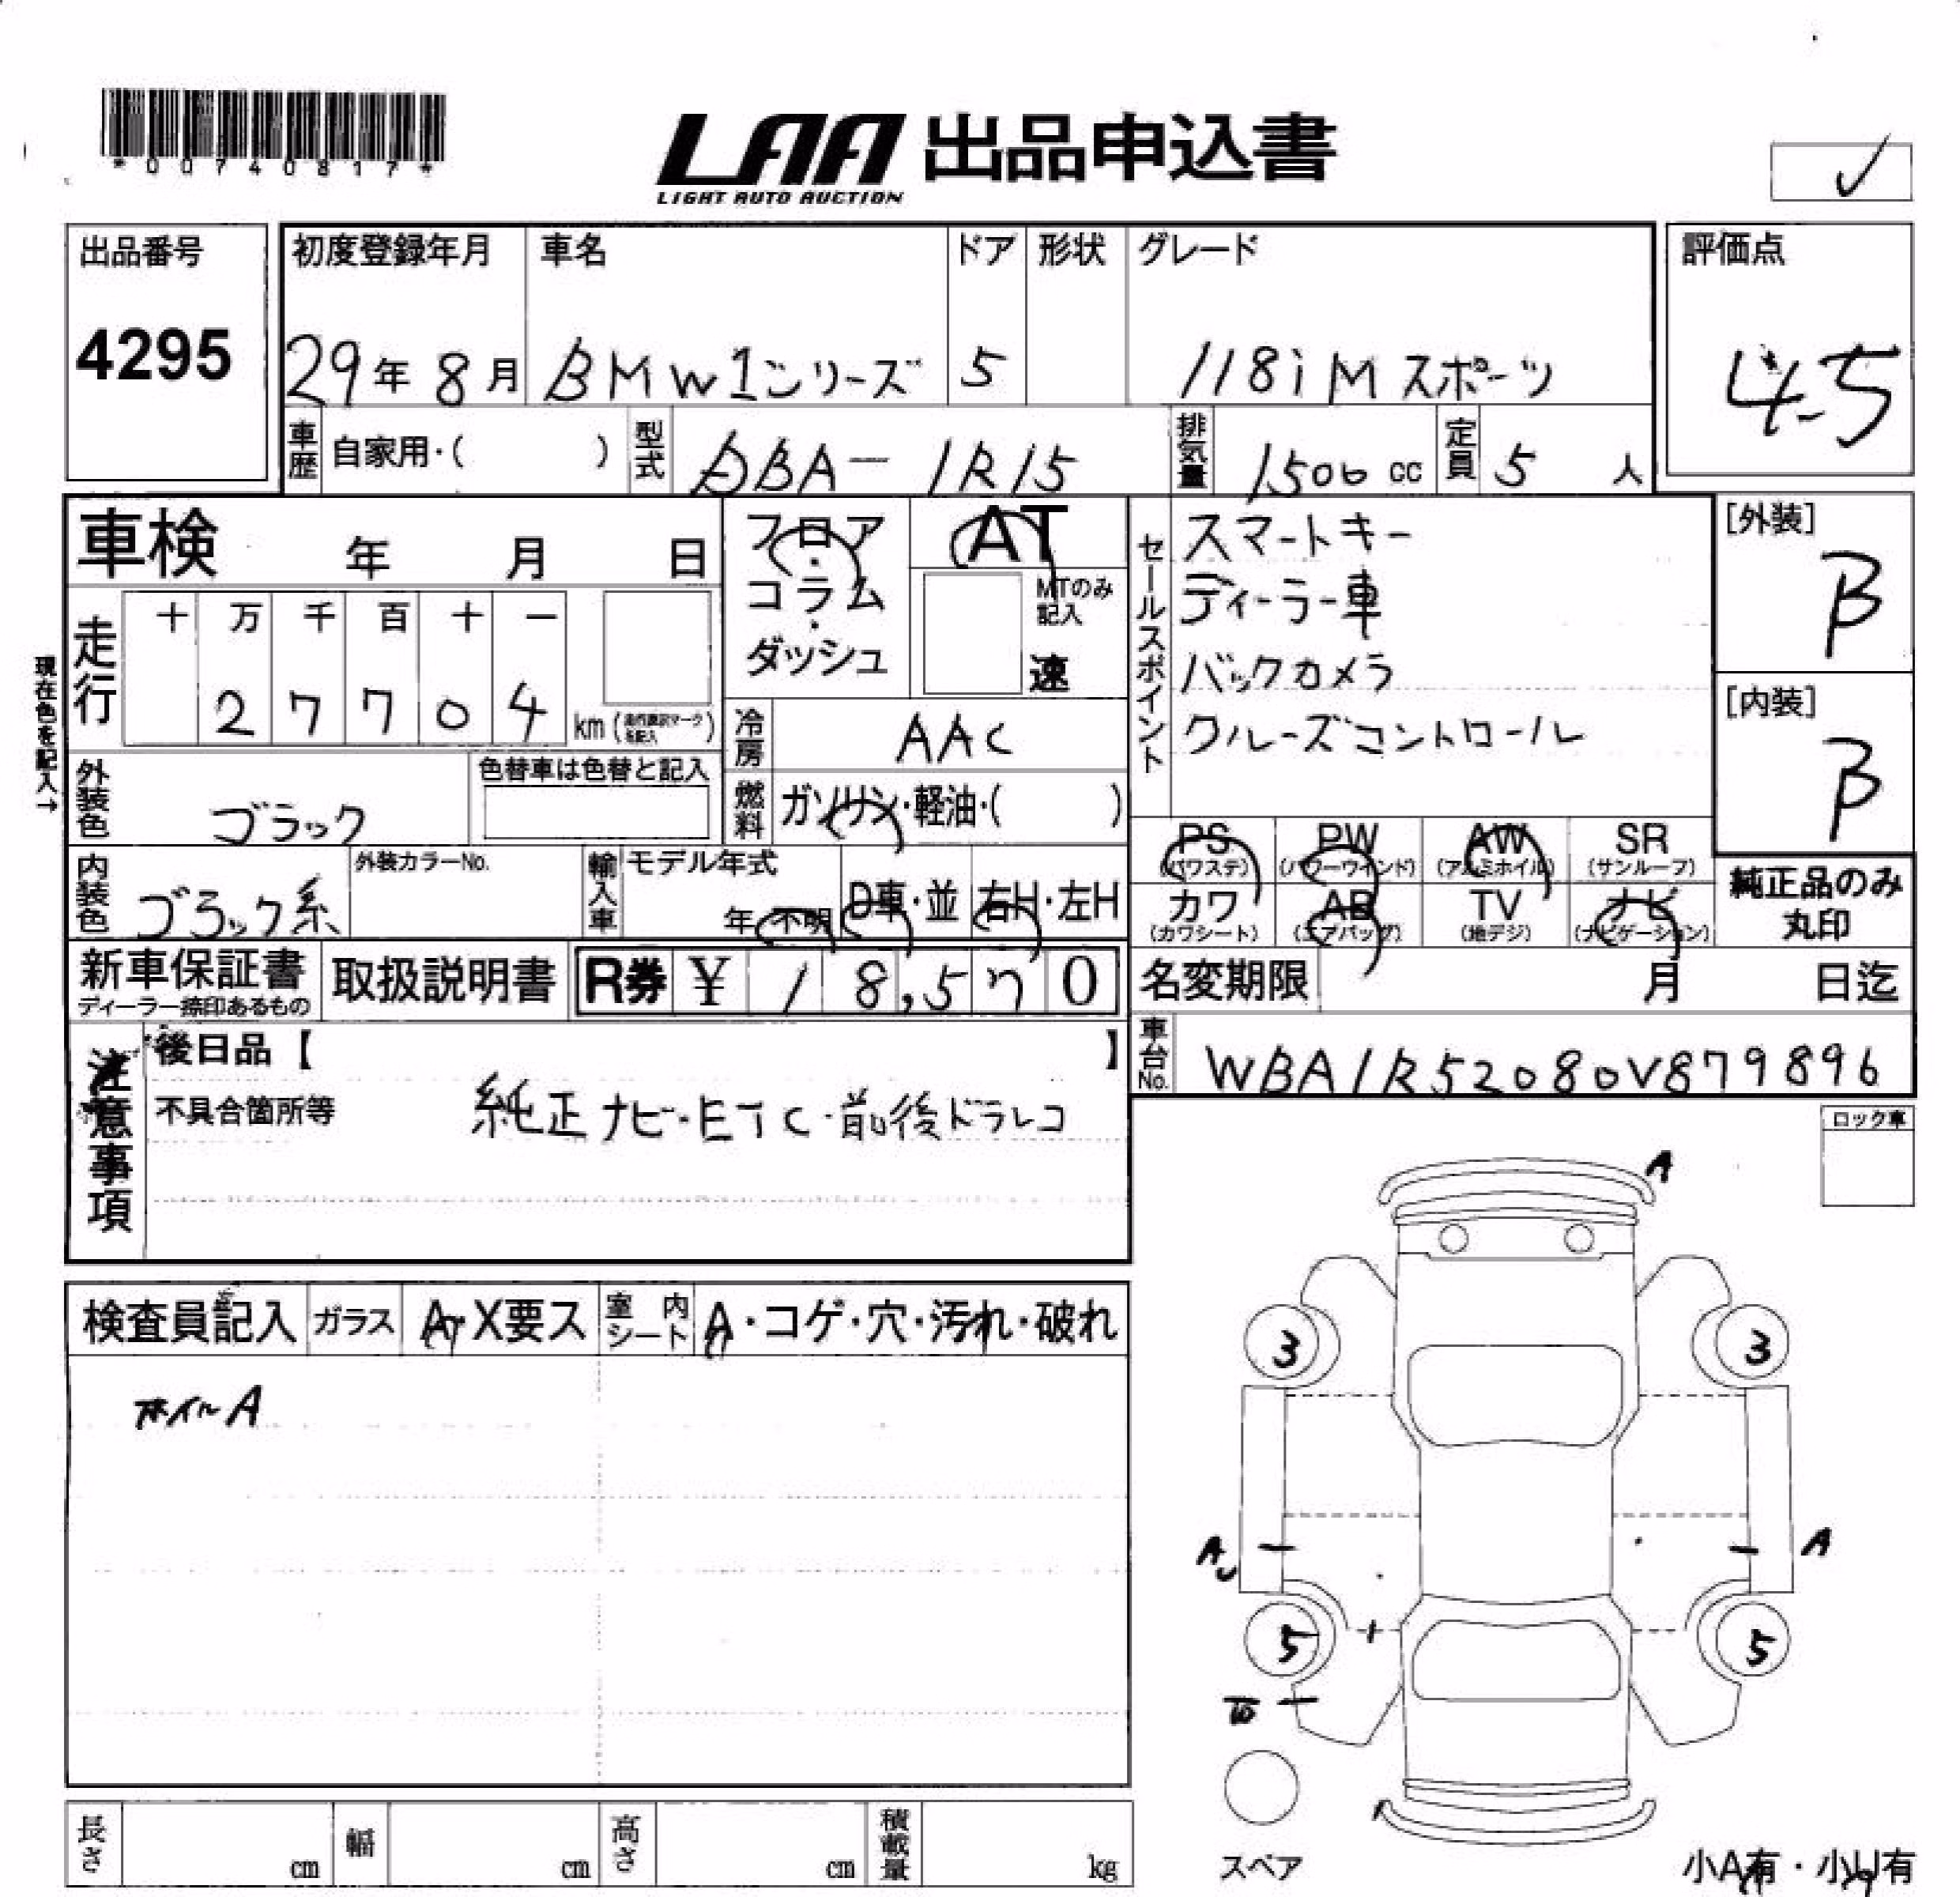 *00740817*
LAA 出品申込書
LIGHT AUTO AUCTION
出品番号
4295
初度登録年月
29年 8月
車名
BMW1シリーズ
ドア
5
形状
グレード
118i Mスポーツ
評価点
4.5
車歴 自家用・( )
型式 DBA-1R15
排気量 1500 cc
定員 5 人
車検 年 月 日
フロア・コラム・ダッシュ
AT
MTのみ記入
速
セールスポイント
スマートキー
ディーラー車
バックカメラ
クルーズコントロール
[外装]
B
[内装]
B
現在色を記入→
走行
十 万 千 百 十 一
2 7 7 0 4 km
冷房 AAC
外装色 ブラック
色替車は色替と記入
燃料 ガソリン・軽油・( )
PS (パワステ)
PW (パワーウインド)
AW (アルミホイル)
SR (サンルーフ)
カワ (カワシート)
AB (エアバッグ)
TV (地デジ)
ナビ (ナビゲーション)
純正品のみ
丸印
内装色 ブラック系
外装カラーNo.
輸入車
モデル年式
年・不明
D車・並
右H・左H
新車保証書
ディーラー捺印あるもの
取扱説明書
R券 ¥ 18,570
名変期限 月 日迄
車台No. WBA1R52080V879896
注意事項
後日品【 】
不具合箇所等
純正ナビ・ETC・前後ドラレコ
ロック車
検査員記入
ガラス A・X要ス
室内シート A・コゲ・穴・汚れ・破れ
ホイルA
A
3
3
A
A
5
5
スペア
長さ cm
幅 cm
高さ cm
積載量 kg
小A有・小U有